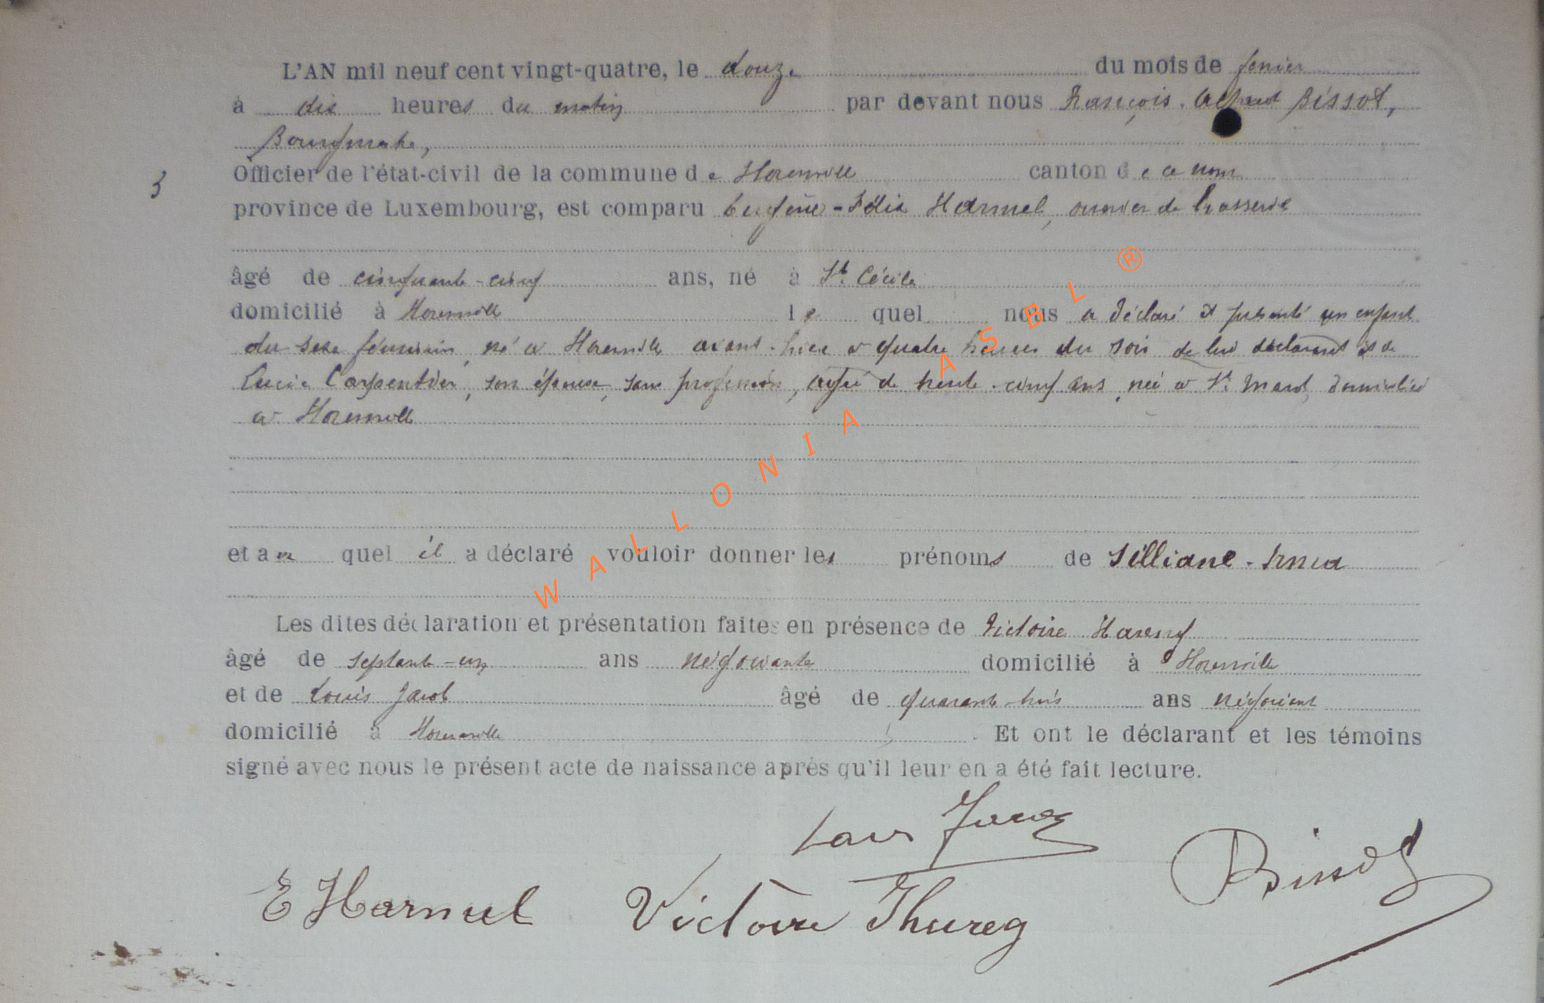 L'AN mil neuf cent vingt-quatre, le douze du mois de
à dix heures du matin par devant nous François Bissot,
Bourgmestre,
3 Officier de l'état-civil de la commune de Florenville canton de ce nom
province de Luxembourg, est comparu Eugène-Félix Harmel, ouvrier de brasserie
âgé de cinquante-cinq ans, né à Ste Cécile
domicilié à Florenville lequel nous a déclaré et présenté un enfant
du sexe féminin, né à Florenville avant-hier à quatre heures du soir de lui déclarant et de
Lucie Carpentier, son épouse, sans profession, âgée de trente-cinq ans, née à St Mard, domiciliée
à Florenville
et auquel il a déclaré vouloir donner les prénoms de Silliane-Irma
Les dites déclaration et présentation faites en présence de Victoire
âgé de septante-un ans négociante domicilié à Florenville
et de Louis Jacob âgé de quarante-trois ans négociant
domicilié à Florenville. Et ont le déclarant et les témoins
signé avec nous le présent acte de naissance après qu'il leur en a été fait lecture.
E Harmel Victoire Bissot
WALLONIA ASBL ®